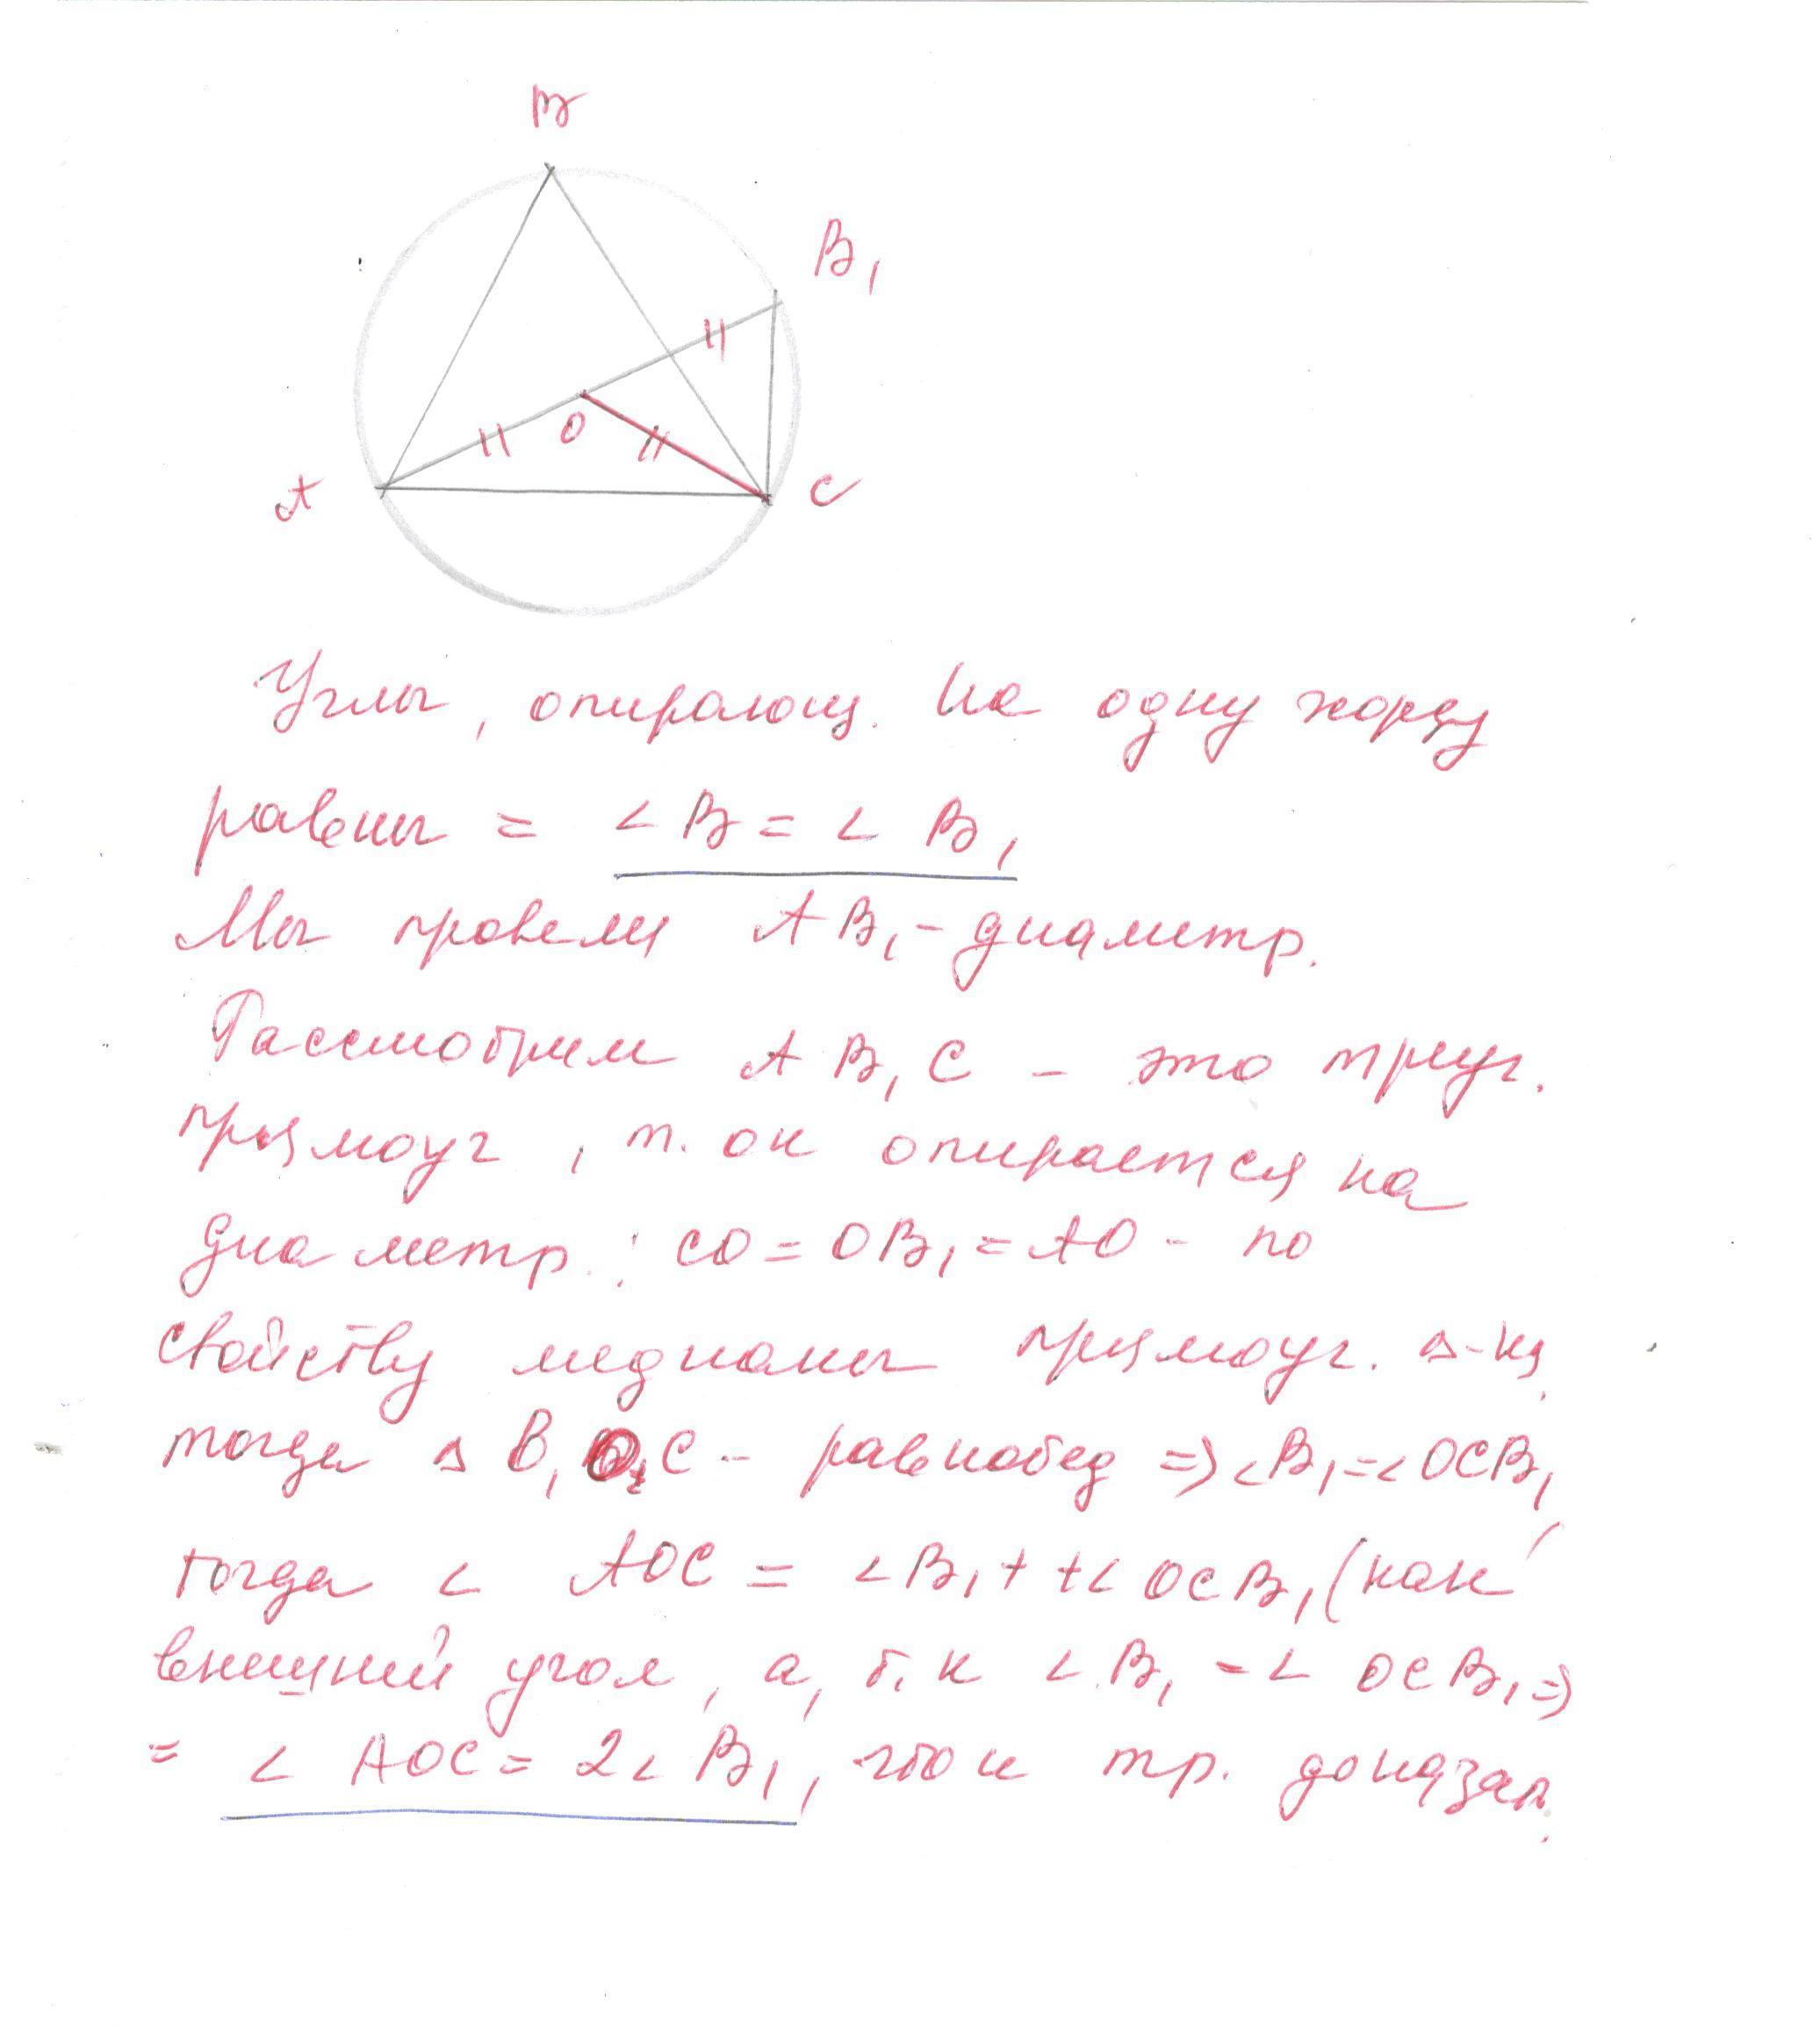 В
В₁
О
А
С
Углы, опирающ. на одну хорду
равны = ∠ В = ∠ В₁
Мы провели АВ₁ - диаметр.
Рассмотрим А В₁ С - это треуг.
прямоуг, т. он опирается на
диаметр.; СО = ОВ₁ = АО - по
свойству медианы прямоуг. Δ-ка,
тогда Δ В₁ О С - равнобед => ∠В₁ = ∠ ОСВ₁
тогда ∠ АОС = ∠В₁ + +∠ ОСВ₁ (как
внешний угол, а, т.к ∠ В₁ = ∠ ОСВ₁ =>
= ∠ АОС = 2∠ В₁, что и тр. доказат.